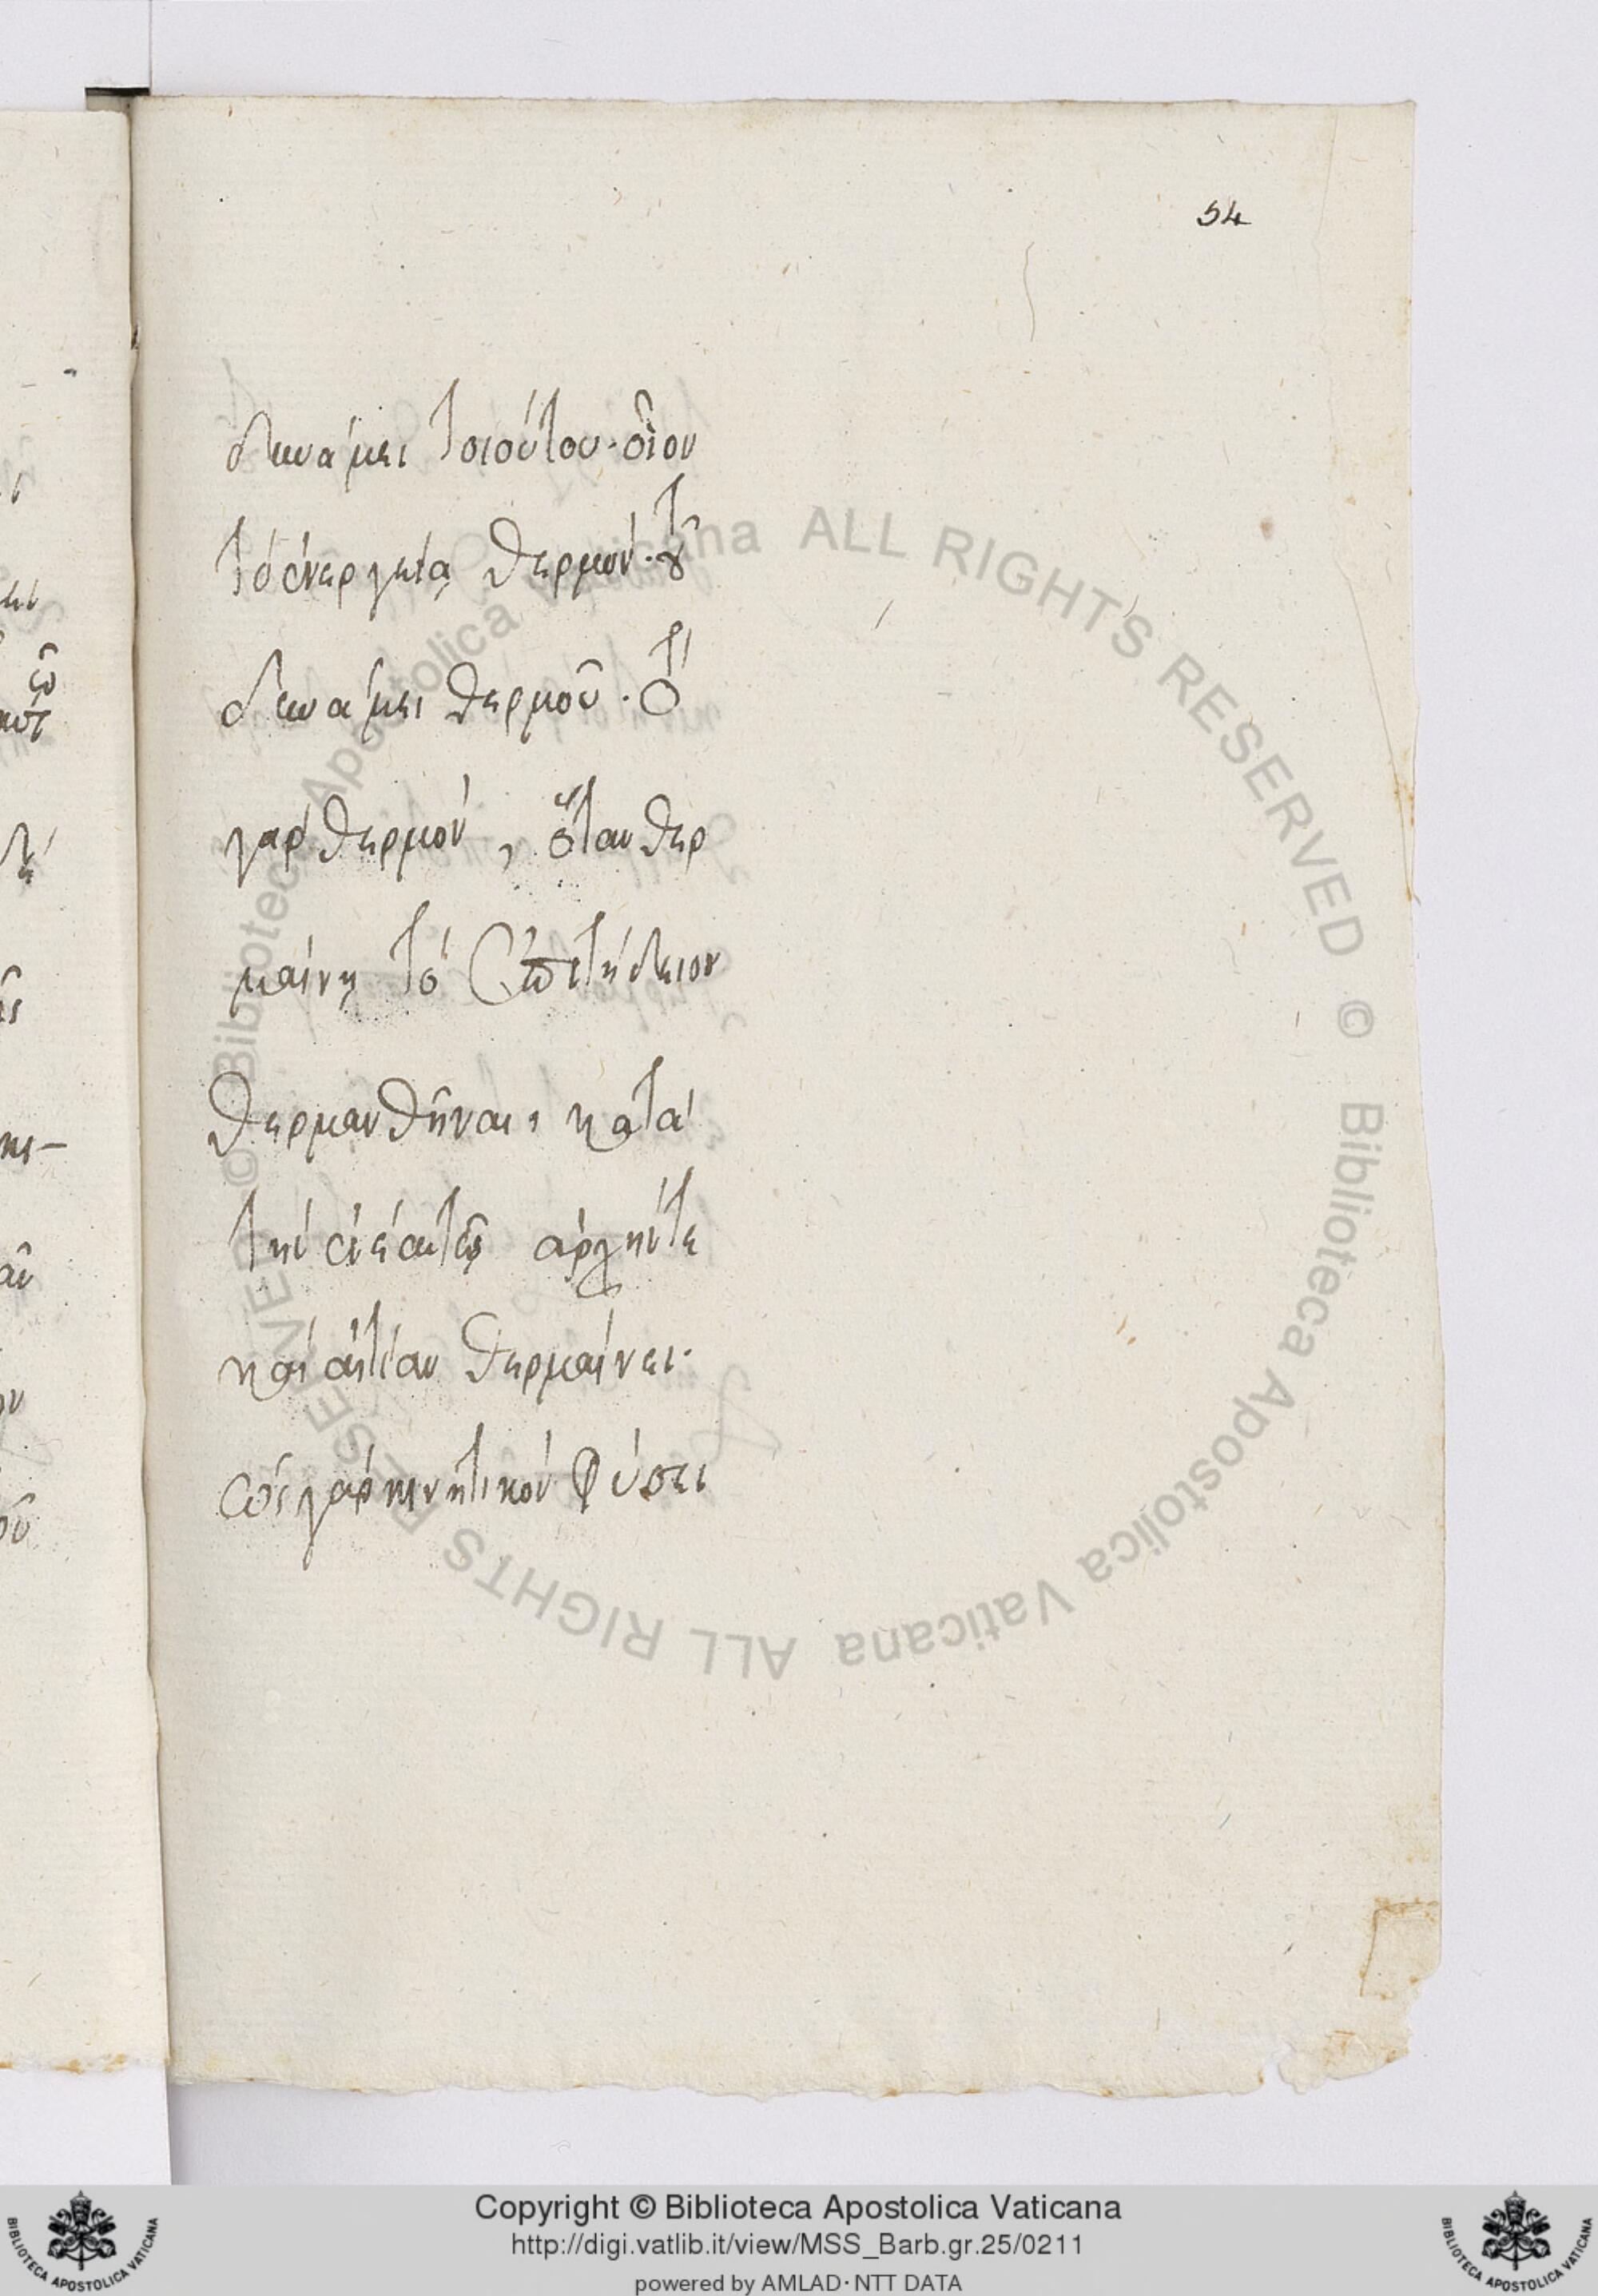 54
δυνάμει τοιούτου· οἷον
τὸ ἐνεργείᾳ θερμόν· τοῦ
δυνάμει θερμοῦ· τὸ
γὰρ θερμόν, ὅταν θερ
μαίνῃ τὸ ἐπιτήδειον
θερμανθῆναι, κατὰ
τὴν ἐν ἑαυτῷ ἀρχήν τε
καὶ αἰτίαν θερμαίνει·
ὡς γὰρ κινητικὸν φύσει
© Biblioteca Apostolica Vaticana ALL RIGHTS RESERVED © Biblioteca Apostolica Vaticana ALL RIGHTS RESERVED
Copyright © Biblioteca Apostolica Vaticana
http://digi.vatlib.it/view/MSS_Barb.gr.25/0211
powered by AMLAD·NTT DATA
BIBLIOTECA APOSTOLICA VATICANA
BIBLIOTECA APOSTOLICA VATICANA